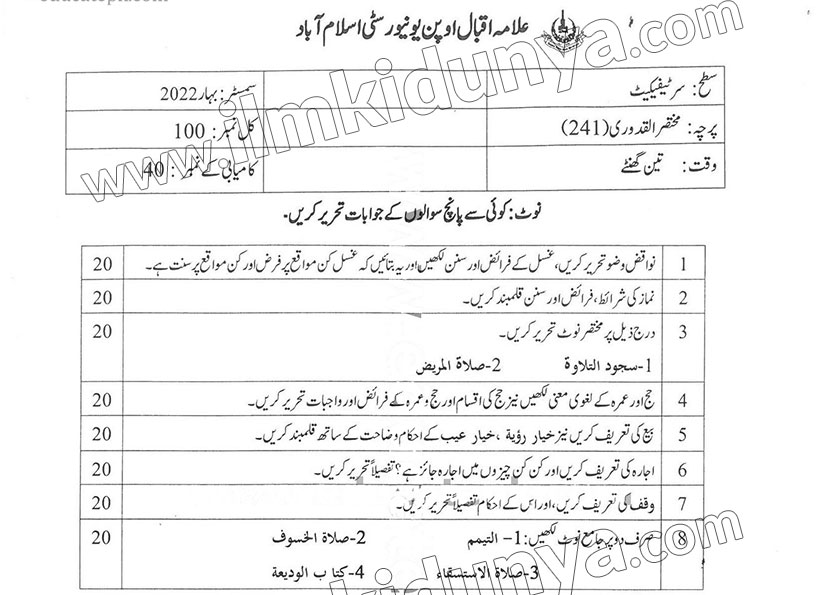 علامہ اقبال اوپن یونیورسٹی اسلام آباد
سطح: سرٹیفیکیٹ سمسٹر: بہار 2022
پرچہ: مختصر القدوری (241) کل نمبر: 100
وقت: تین گھنٹے کامیابی کے نمبر: 40
نوٹ: کوئی سے پانچ سوالوں کے جوابات تحریر کریں۔
1 نواقض وضو تحریر کریں، غسل کے فرائض اور سنن لکھیں اور یہ بتائیں کہ غسل کن مواقع پر فرض اور کن مواقع پر سنت ہے۔ 20
2 نماز کی شرائط، فرائض اور سنن قلمبند کریں۔ 20
3 درج ذیل پر مختصر نوٹ تحریر کریں۔ 20
1-سجود التلاوة 2-صلاة المریض
4 حج اور عمرہ کے لغوی معنی لکھیں نیز حج کی اقسام اور حج و عمرہ کے فرائض اور واجبات تحریر کریں۔ 20
5 بیع کی تعریف کریں نیز خیار رؤیة ، خیار عیب کے احکام وضاحت کے ساتھ قلمبند کریں۔ 20
6 اجارہ کی تعریف کریں اور کن کن چیزوں میں اجارہ جائز ہے؟ تفصیلاً تحریر کریں۔ 20
7 وقف کی تعریف کریں، اور اس کے احکام تفصیلاً تحریر کریں۔ 20
8 صرف دو پر جامع نوٹ لکھیں: 1- التیمم 2-صلاة الخسوف 20
3-صلاة الاستسقاء 4-کتاب الودیعة
www.ilmkidunya.com